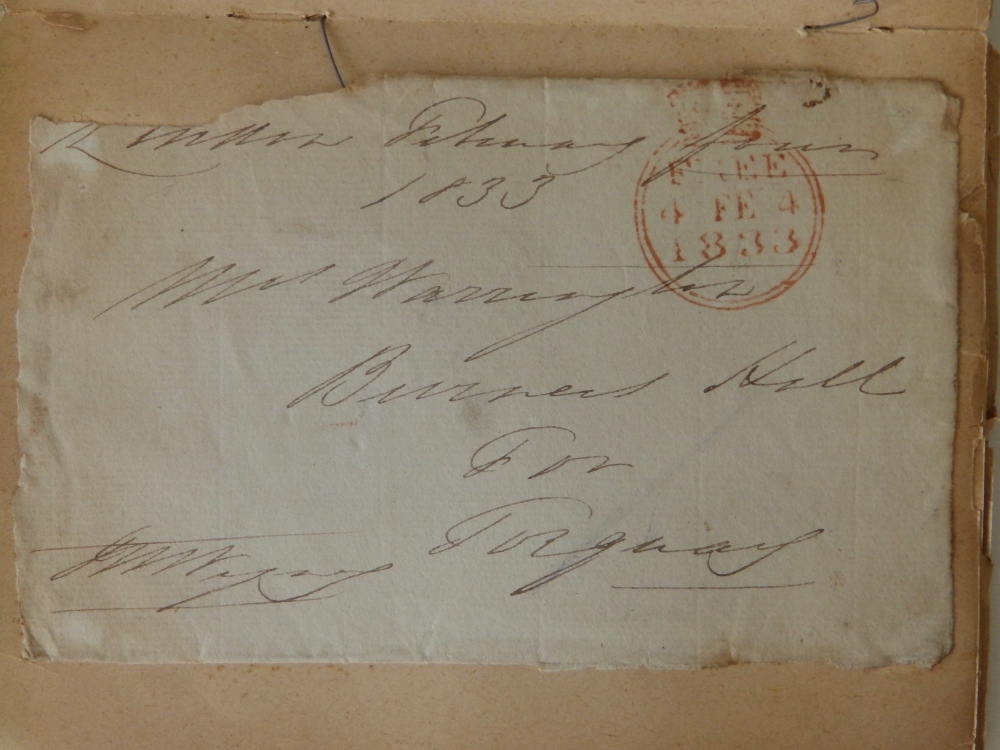 London February four
1833
FREE
4 FE 4
1833
Mrs Warrington
Hill
For
Torquay